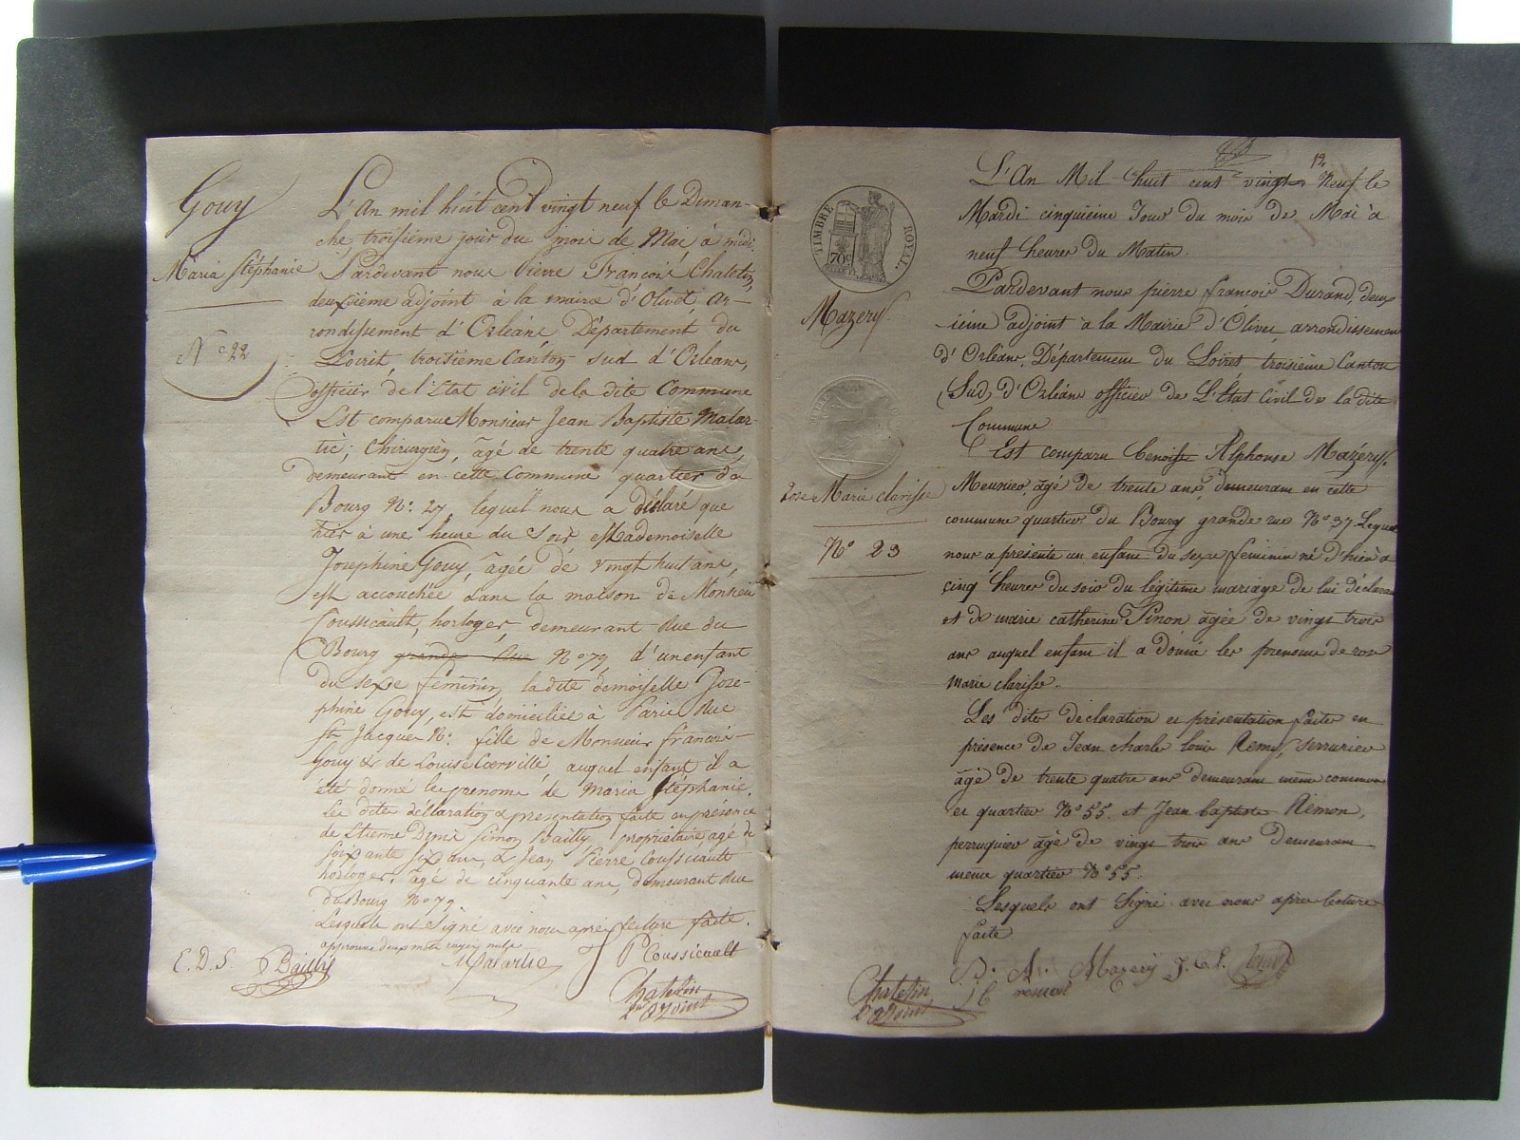 Gouy
Maria Stéphanie
N° 22
L'An mil huit cent vingt neuf le Diman-
che troisième jour du mois de Mai, à midi.
Pardevant nous Pierre François Chatelin,
deuxième adjoint à la mairie d'Olivet ar-
rondissement d'Orléans, Département du
Loiret, troisième Canton sud d'Orléans,
officier de l'Etat civil de la dite Commune
Est comparu Monsieur Jean Baptiste Malar-
tic, Chirurgien, âgé de trente quatre ans,
demeurant en cette Commune quartier du
Bourg N°. 27, lequel nous a déclaré que
hier à une heure du soir Mademoiselle
Joséphine Gouy, âgée de vingt huit ans,
est accouchée dans la maison de Monsieur
Coussicault, horloger, demeurant Rue du
Bourg grande Rue N° 79 d'un enfant
du sexe féminin, ladite demoiselle Jose-
phine Gouy, est domiciliée à Paris Rue
St. Jacques N°. fille de Monsieur François
Gouy & de Louise auquel enfant il a
été donné les prénoms de Maria Stéphanie.
Les dites déclaration & présentation faite en présence
de Etienne Denis Simon Bailly propriétaire, agé de
soixante six ans, & Jean Pierre Coussicault
horloger, agé de cinquante ans, demeurant Rue
du Bourg N° 79.
Lesquels ont signé avec nous après lecture faite.
approuvé deux mots rayés nuls
E. D. S. Bailly Malartic J P Coussicault
Chatelin
adjoint
12
TIMBRE ROYAL
70c
Mazery
Rose Marie clarisse
N° 23
L'An Mil huit cent vingt Neuf le
Mardi cinquième Jour du mois de Mai à
neuf heures du Matin.
Pardevant nous pierre françois Durand, deux
-ième adjoint à la Mairie d'Olivet, arrondissement
d'Orléans, Département du Loiret troisième Canton
(Sud) d'Orléans officier de L'État Civil de la dite
Commune
Est comparu Benoist Alphonse Mazéry,
Meunier, âgé de trente ans demeurant en cette
commune quartier du Bourg grande rue N° 37 Lequel
nous a présenté un enfant du sexe féminin né d'hier à
cinq heures du soir du légitime mariage de lui déclarant
et de marie catherine Pinon âgée de vingt trois
ans auquel enfant il a donné les prénoms de rose
marie clarisse.
Les dites déclaration et présentation faites en
présence de Jean charles louis Remy, serrurier
âgé de trente quatre ans demeurant même commune
et quartier N° 55. et Jean baptiste Rémon,
perruquier âgé de vingt trois ans demeurant
même quartier N° 55.
Lesquels ont Signé avec nous après lecture
faite
B. A. Mazery J. C. L. Remy
Chatelin
adjoint
J B remon